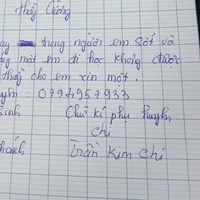 thầy Cường
ay trong người em sốt và
mặt em đi học không được
thầy cho em xin một.
0794957933
sinh Chữ kí phụ huynh
Chi
Trần Kim Chi